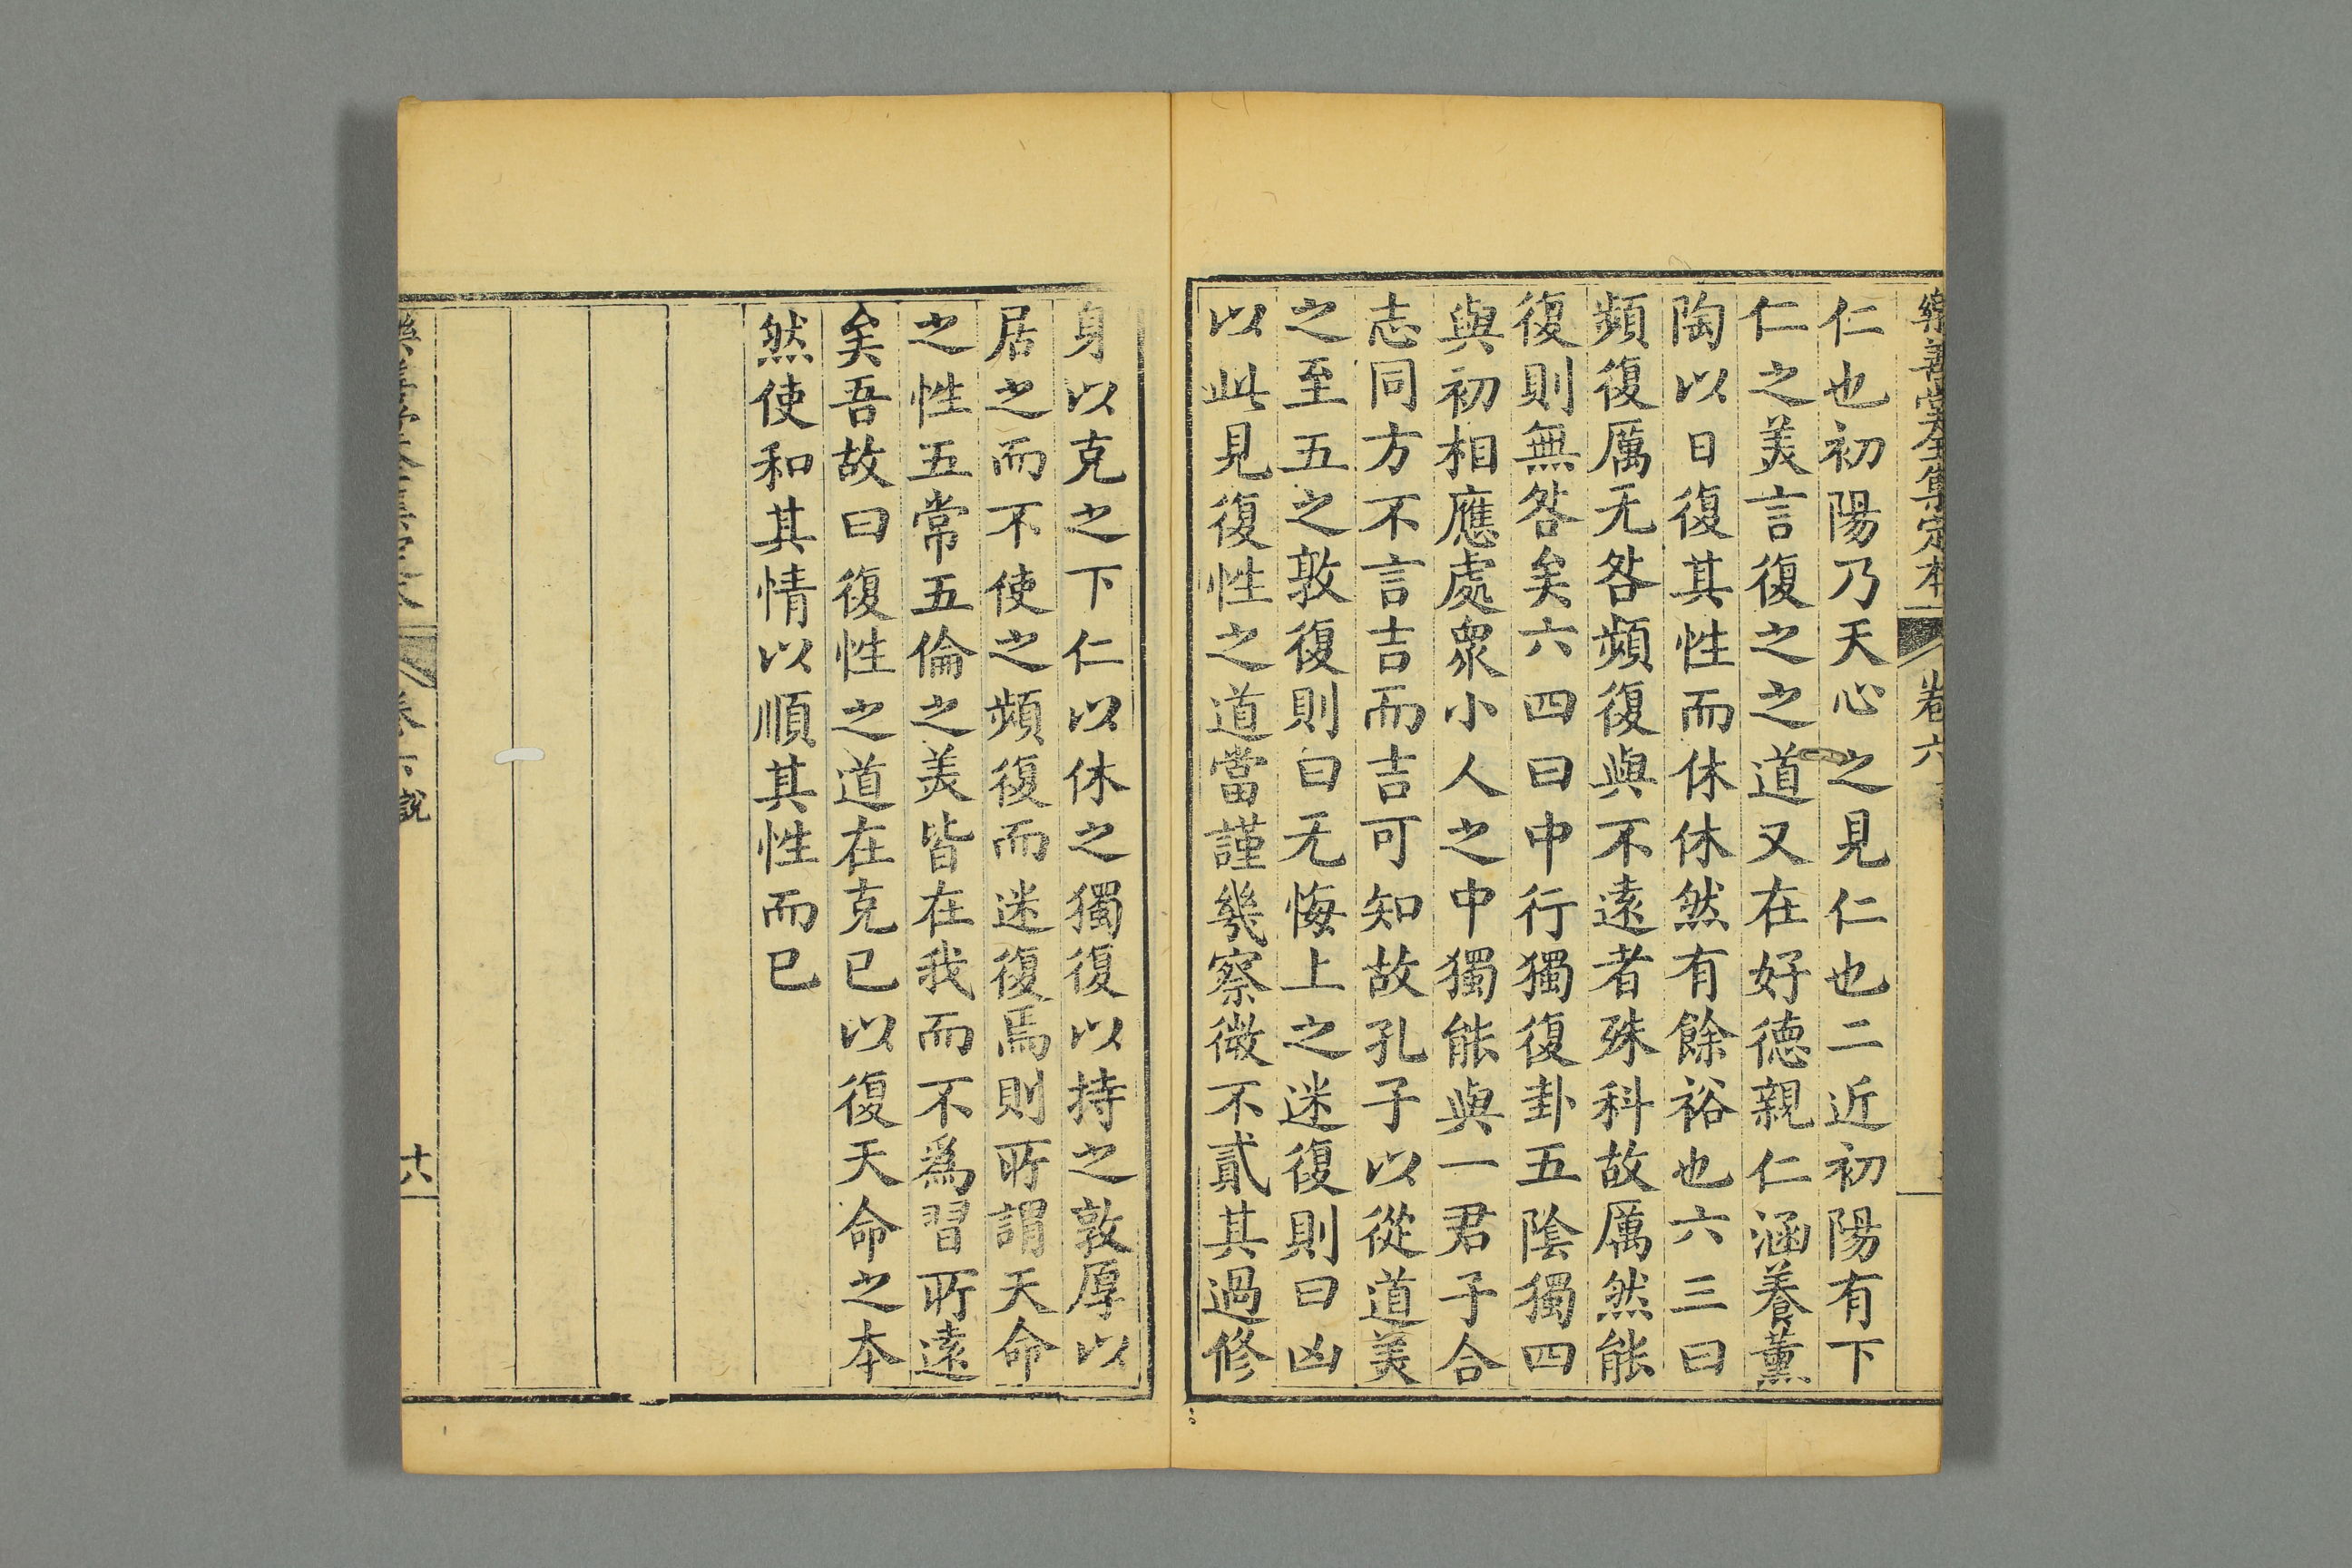 樂善堂全集定本 卷六
仁也初陽乃天心之見仁也二近初陽有下
仁之美言復之之道又在好德親仁涵養薰
陶以日復其性而休休然有餘裕也六三曰
頻復厲无咎頻復與不遠者殊科故厲然能
復則無咎矣六四曰中行獨復卦五陰獨四
與初相應處衆小人之中獨能與一君子合
志同方不言吉而吉可知故孔子以從道美
之至五之敦復則曰无悔上之迷復則曰凶
以此見復性之道當謹幾察微不貳其過修
身以克之下仁以休之獨復以持之敦厚以
居之而不使之頻復而迷復焉則所謂天命
之性五常五倫之美皆在我而不爲習所遠
矣吾故曰復性之道在克己以復天命之本
然使和其情以順其性而已
說 十六